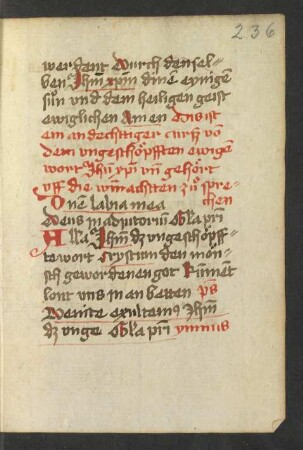 236
werdent Durch densel-
ben Jhm xpm dinen eynigen
sun vnd dem heiligen geist
ewiglichen Amen Dis ist
ein andechtiger curß vo
dem vngeschöpfften ewigen
wort Jhu xpi vn gehört
vff die winachsten zu spre-
chen
Dne labia mea
Deus in adiutoriu Gl'a pri
Alla Jhm dz vngeschöpff-
te wort Crystum den mön-
sch gewordenen got kument
lont vns in an betten ps
Venite exultem9 Jhm
dz vnge Gl'a pri ymnus